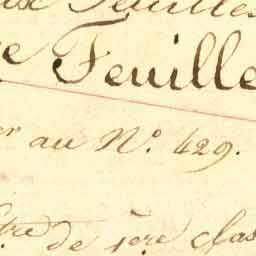 Feuilles
e Feuille
er au N.º 429.
tre de 1ere clas